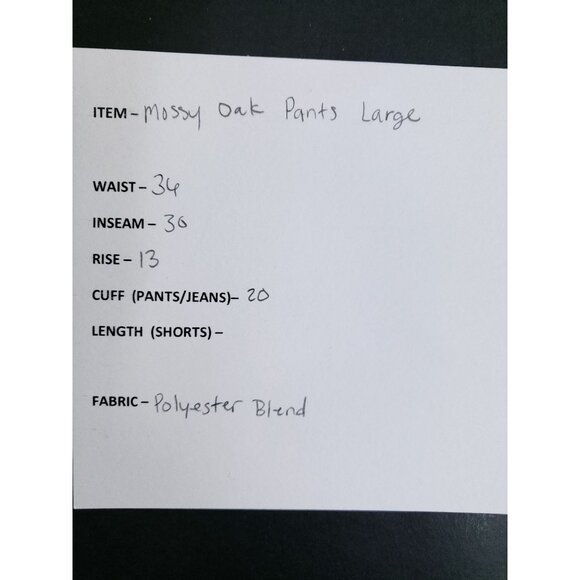 ITEM- Mossy Oak Pants Large
WAIST- 34
INSEAM- 30
RISE- 13
CUFF (PANTS/JEANS)- 20
LENGTH (SHORTS) -
FABRIC- Polyester Blend